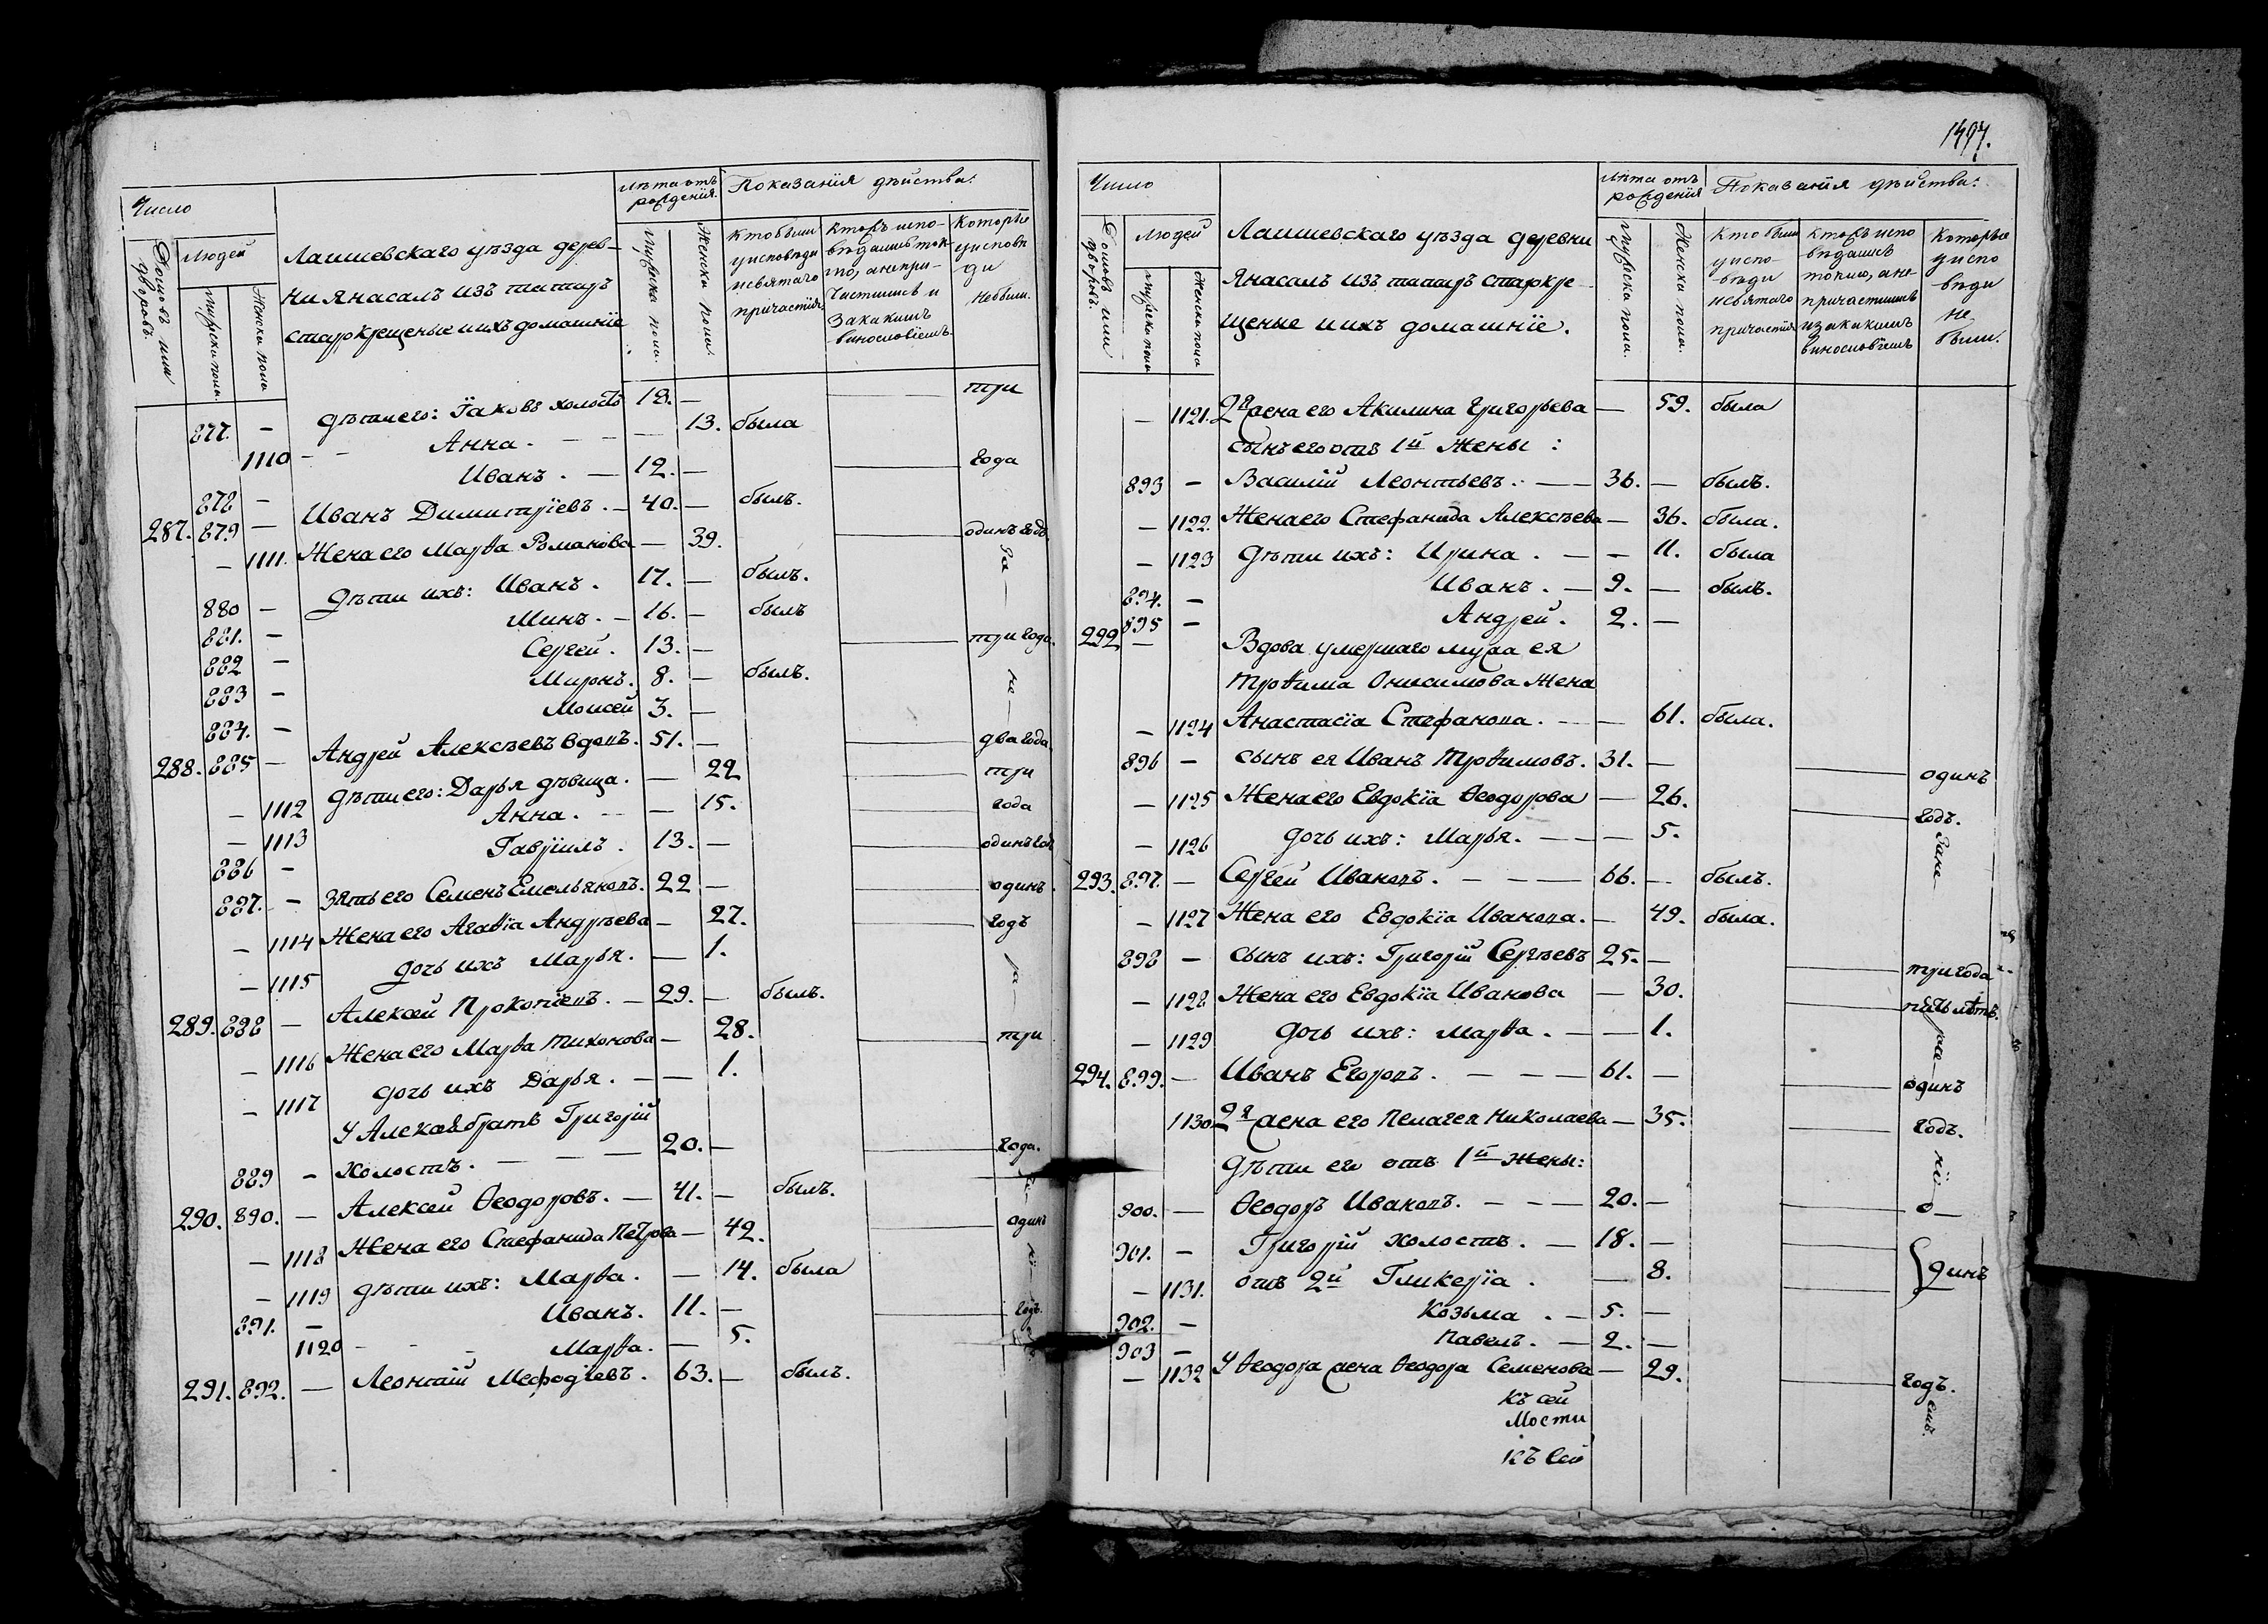 Число
Лѣта отъ рожденія.
Показанія дѣйства:
Домовъ или дворовъ.
Людей
Мужеска пола.
Женска пола
Лаишевскаго уѣзда дерев-
ни Янасалъ изъ татаръ
старокрещеные и ихъ домашніе
Мужеска пола.
Женска пола.
Кто были у исповѣди и святаго причастія
Кто исповѣдались токмо, а не причастились и за какимъ винословіемъ.
Которые у исповѣди не были.
877. — дѣти его: Іаковъ холостъ 18. — три
1110 — Анна. — 13. была
878 — Иванъ. — 12. — года
287. 879 — Иванъ Димитріевъ. — 40. — былъ.
— 1111. Жена его Марѳа Романова — 39. одинъ годъ
880 — дѣти ихъ: Иванъ. 17. — былъ.
881. — Минъ. — 16. — былъ
882 — Сергей. 13. — три года.
883 — Миронъ. 8. — былъ.
884. — Моисей 3. —
288. 885 — Андрей Алексѣевъ вдовъ. 51. — два года.
— 1112 дѣти его: Дарья дѣвица. — 22 три
— 1113 Анна. — 15. года
886 — Гавріилъ. 13. — одинъ годъ
887. — Зять его Семенъ Емельяновъ. 22 — одинъ
— 1114 Жена его Агаѳіа Андрѣева — 27. годъ
— 1115 дочь ихъ Марья. — 1.
289. 888 — Алексей Прокопіевъ. — 29. — былъ.
— 1116 Жена его Марѳа Тихонова — 28. три
— 1117 дочь ихъ Дарья. — 1.
У Алексѣя братъ Григорій
889 — холостъ. — 20. — года.
290. 890. — Алексей Ѳеодоровъ. — 41. — былъ.
— 1118 Жена его Стефанида Петрова — 42. одинъ
— 1119 дѣти ихъ: Марѳа. — 14. была
891. — Иванъ. 11. — годъ.
1120 — Марѳа. — 5.
291. 892. — Леонтій Мефодіевъ. 63. — былъ.
1497.
Число
Лѣта отъ рожденія
Показанія дѣйства:
Домовъ или дворовъ.
Людей
Мужеска пола
Женска пола
Лаишевскаго уѣзда деревни
Янасалъ изъ татаръ старокре-
щеные и ихъ домашніе.
Мужеска пола.
Женска пола.
Кто были у исповѣди и святаго причастія
Кто исповѣдались токмо, а не причастились и за какимъ винословіемъ
Которые у исповѣди не были.
— 1121. 2я жена его Акилина Григорьева — 59. была
сынъ его отъ 1й Жены:
893 — Василій Леонтьевъ. — 36. — былъ.
— 1122. Жена его Стефанида Алексѣева — 36. была.
— 1123 дѣти ихъ: Ирина. — 11. была
894. — Иванъ. — 9. — былъ.
895 — Андрей. 2. —
292 — Вдова умершаго мужа ея
Трофима Онисимова Жена
— 1124 Анастасіа Стефанова. — 61. была.
896 — сынъ ея Иванъ Трофимовъ. 31. — одинъ
— 1125 Жена его Евдокіа Ѳеодорова — 26. годъ.
— 1126 дочь ихъ: Марья. — 5.
293. 897. — Сергей Ивановъ. — 66. — былъ.
— 1127 Жена его Евдокіа Иванова. — 49. была.
898 — сынъ ихъ: Григорій Сергѣевъ 25. — три года
— 1128 Жена его Евдокіа Иванова — 30. пять лѣтъ.
— 1129 дочь ихъ: Марѳа. — 1.
294. 899. — Иванъ Егоровъ. — 61. — одинъ
1130 2я жена его Пелагея Николаева — 35. годъ.
дѣти его отъ 1й жены:
900. — Ѳеодоръ Ивановъ. — 20. — о
901. — Григорій холостъ. — 18. —
— 1131. отъ 2й Гликеріа. — 8. динъ
902. — Козьма. — 5. —
903 — Павелъ. — 2. —
— 1132 У Ѳеодора жена Ѳеодора Семенова — 29. годъ.
Къ сей
Мости
Къ Сей